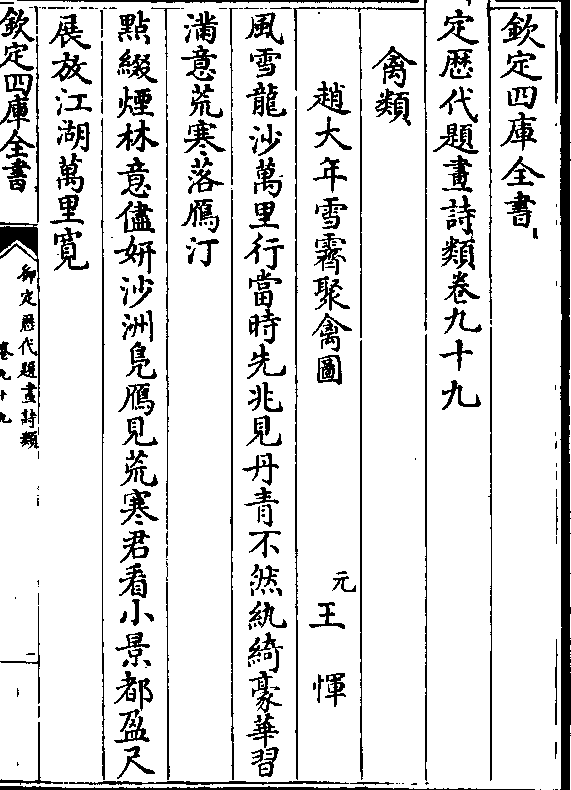 欽定四庫全書
定歴代題畫詩類卷九十九
禽類
趙大年雪霽聚禽圖 元 王惲
風雪龍沙萬里行當時先兆見丹青不然紈綺豪華習
滿意荒寒落鴈汀
點綴煙林意儘妍沙洲鳬鴈見荒寒君看小景都盈尺
展放江湖萬里寛
欽定四庫全書
御定歴代題畫詩類
卷九十九
一